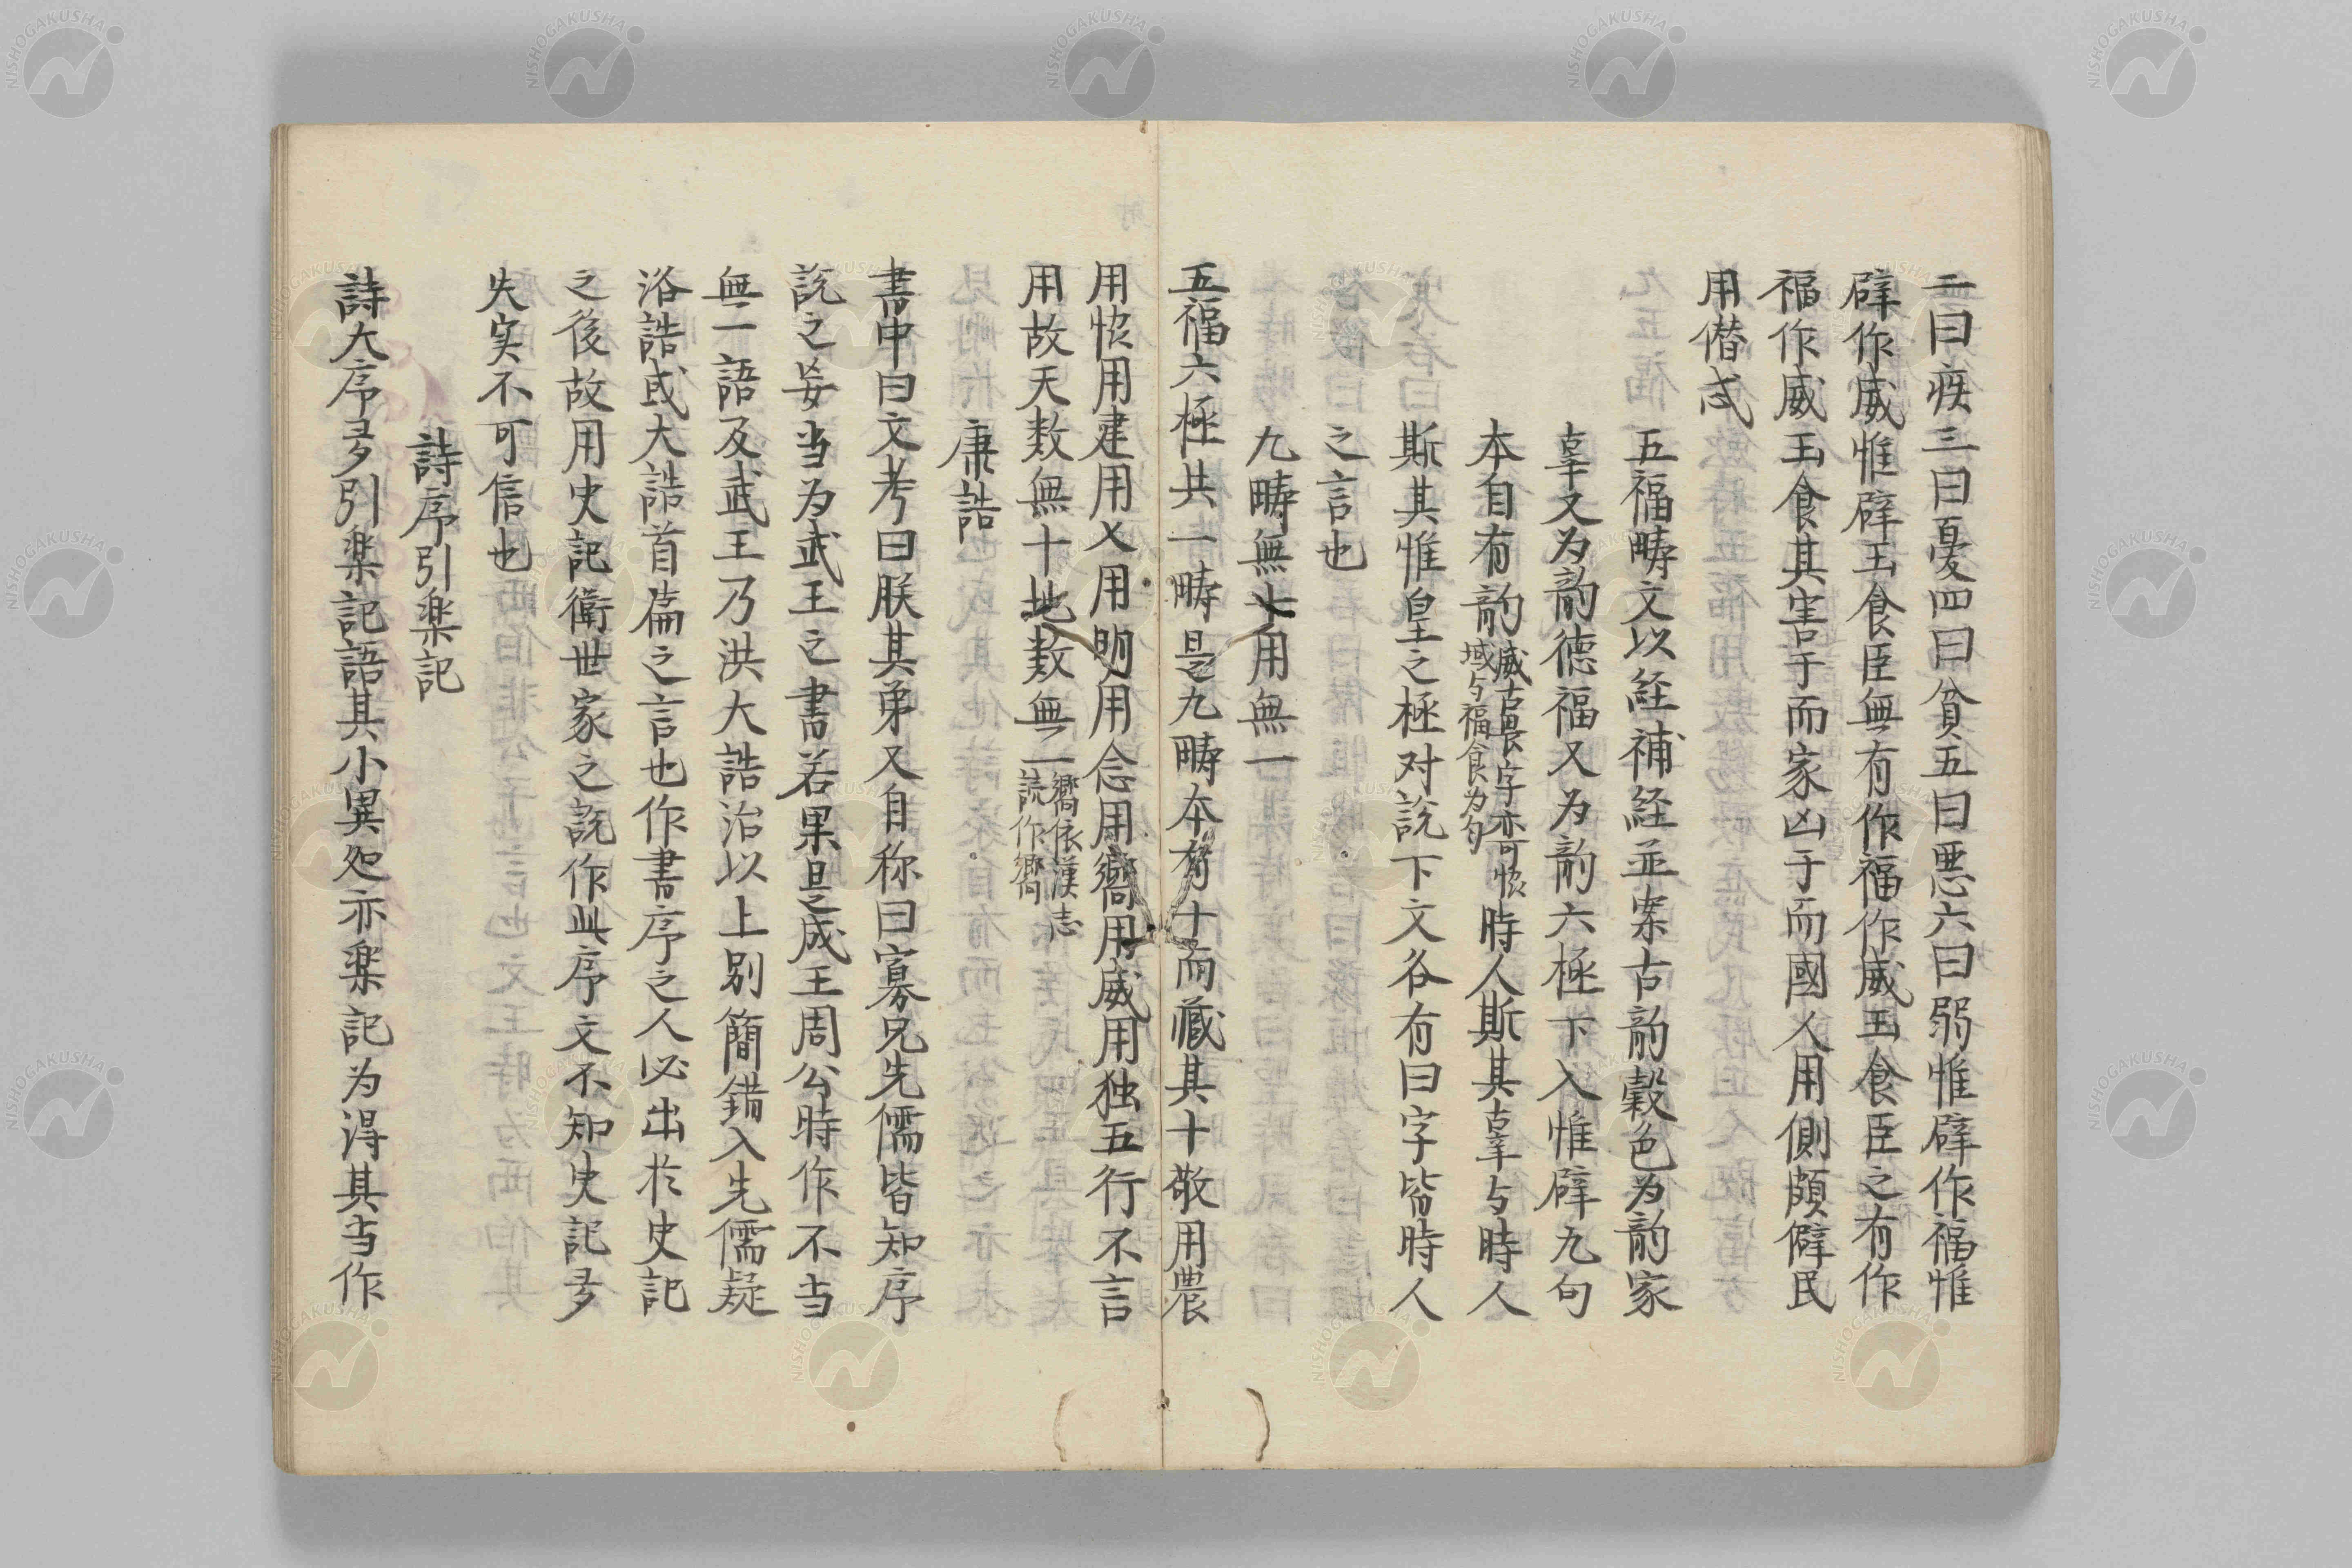 二曰疾三曰憂四曰貧五曰悪六曰弱惟辟作福惟
辟作威惟辟玉食臣無有作福作威玉食臣之有作
福作威玉食其害于而家凶于而國人用側頗僻民
用僭忒
五福疇文以経補経並案古韵穀色为韵家
辜又为韵徳福又为韵六極下入惟辟九句
本自有韵威古畏字亦可恢域与福食为句時人斯其辜与時人
斯其惟皇之極对説下文各有曰字皆時人
之言也
九疇無七用無一
五福六極共一疇是九疇本有十而藏其十敬用農
用恢用建用乂用明用念用嚮用威用独五行不言
用故天数無十地数無二嚮依漢志読作嚮
康誥
書中曰文考曰朕其弟又自称曰寡兄先儒皆知序
説之妄当为武王之書若果是成王周公時作不当
無一語及武王乃洪大誥治以上別簡錯入先儒疑
洛誥或大誥首篇之言也作書序之人必出於史記
之後故用史記衛世家之説作此序文不知史記多
失实不可信也
詩序引楽記
詩大序多引楽記語其小異処亦楽記为得其当作
NISHOGAKUSHA